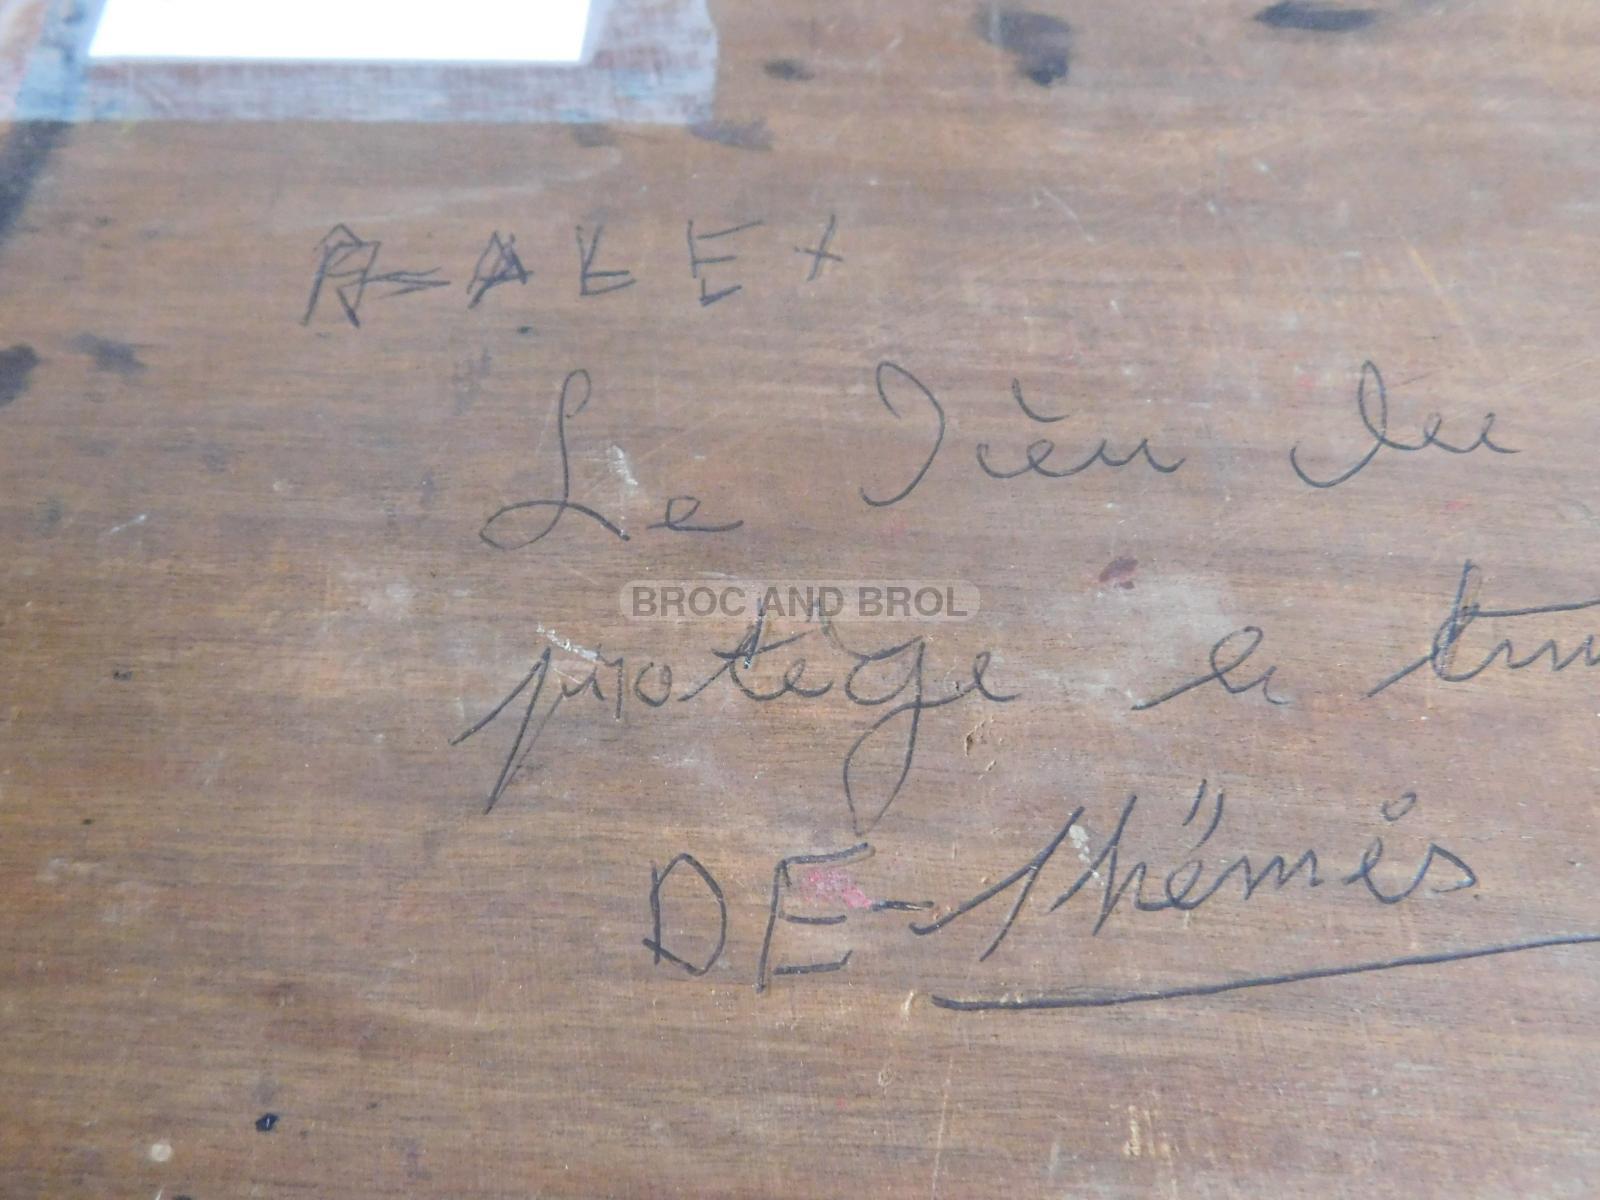 A-ALEX
Le Dièu du
BROC AND BROL
protège le
DE-Thémis